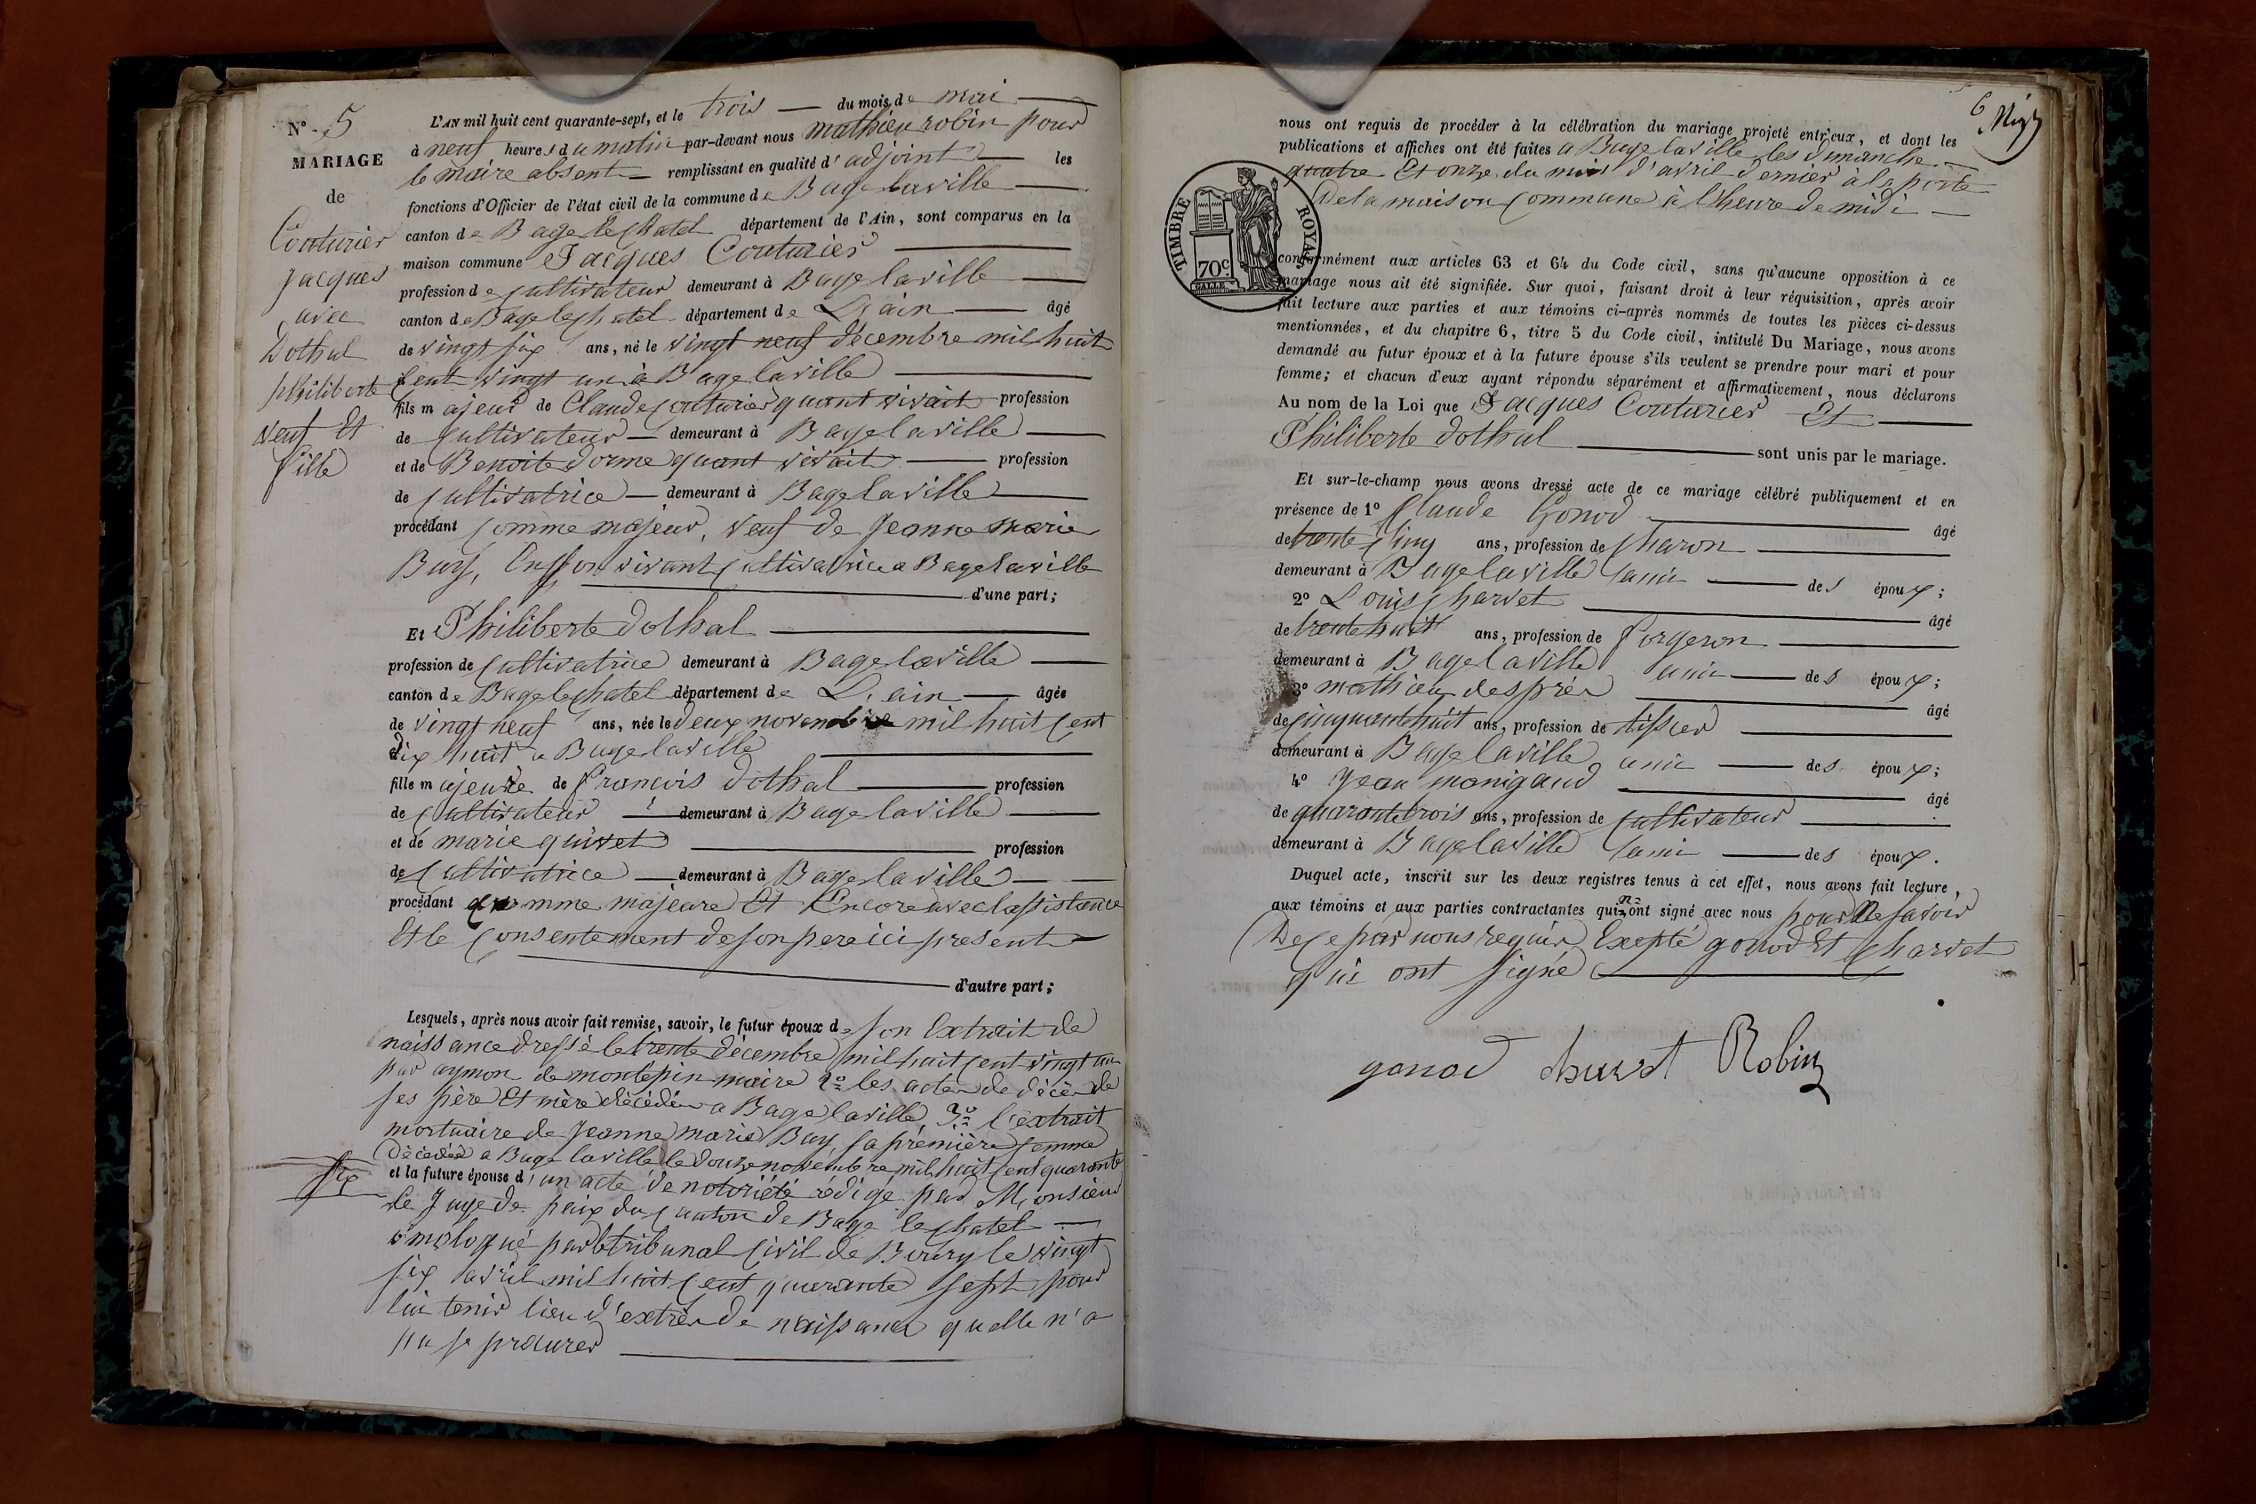 N° 5
MARIAGE
de
Couturier
Jacques
avec
Dothal
philiberte
veuf Et
fille
L'AN mil huit cent quarante-sept, et le trois du mois de mai
à neuf heures du matin par-devant nous mathieu robin pour
le maire absent remplissant en qualité d'adjoint les
fonctions d'Officier de l'état civil de la commune de Bagelaville
canton de Bage le Chatel département de l'Ain, sont comparus en la
maison commune Jacques Couturier
profession de Cultivateur demeurant à Bagelaville
canton de Bage le chatel département de L'ain âgé
de vingt six ans, né le vingt neuf décembre mil huit
Cent vingt un à Bagelaville
fils majeur de Claude Couturier quant vivait profession
de Cultivateur demeurant à Bagelaville
et de Benoite dorme quant vivait profession
de Cultivatrice demeurant à Bagelaville
procédant Comme majeur, veuf de Jeanne marie
Buy, En son vivant Cultivatrice a Bagelaville
d'une part;
Et Philiberte dothal
profession de Cultivatrice demeurant à Bagelaville
canton de Bage le chatel département de L'ain âgée
de vingt neuf ans, née le deux novembre mil huit Cent
dix huit a Bagelaville
fille majeure de francois dothal profession
de Cultivateur demeurant à Bagelaville
et de marie quivet profession
de Cultivatrice demeurant à Bagelaville
procédant Comme majeure Et Encore avec lassistance
Et le Consentement de son pere ici present
d'autre part;
Lesquels, après nous avoir fait remise, savoir, le futur époux de son Extrait de
naissance dressé le trente décembre mil huit Cent vingt un
par aymon de montepin maire 2° les actes de décès de
ses père Et mère décédés a Bagelaville, 3° l'extrait
mortuaire de Jeanne marie Buy sa première femme
Décédée a Bage laville le douze novembre mil huit Cent quarante
six
et la future épouse d'un acte de notoriété rédigé par Monsieur
le Juge de paix du Canton de Bage le Chatel
omologué par le tribunal Civil de Bourg le vingt
six avril mil huit Cent quarante sept pour
lui tenir lieu d'extrès de naissance quelle n'a
pu se procurer
6
nous ont requis de procéder à la célébration du mariage projeté entr'eux, et dont les
publications et affiches ont été faites a Bagelaville les dimanche
quatre Et onze du mois d'avril dernier à la porte
De la maison Commune à l'heure de midi
TIMBRE ROYAL
70c
conformément aux articles 63 et 64 du Code civil, sans qu'aucune opposition à ce
mariage nous ait été signifiée. Sur quoi, faisant droit à leur réquisition, après avoir
fait lecture aux parties et aux témoins ci-après nommés de toutes les pièces ci-dessus
mentionnées, et du chapitre 6, titre 5 du Code civil, intitulé Du Mariage, nous avons
demandé au futur époux et à la future épouse s'ils veulent se prendre pour mari et pour
femme; et chacun d'eux ayant répondu séparément et affirmativement, nous déclarons
Au nom de la Loi que Jacques Couturier Et
Philiberte dothal
sont unis par le mariage.
Et sur-le-champ nous avons dressé acte de ce mariage célébré publiquement et en
présence de 1° Claude Gonod âgé
de trente Cinq ans, profession de Charon
demeurant à Bagelaville amis des époux;
2° Louis Charvet âgé
de trente huit ans, profession de forgeron
demeurant à Bagelaville amis des époux;
3° mathieu després âgé
de Cinquante huit ans, profession de tissier
demeurant à Bagelaville amis des époux;
4° Jean monigaud âgé
de quarante trois ans, profession de Cultivateur
demeurant à Bagelaville amis des époux.
Duquel acte, inscrit sur les deux registres tenus à cet effet, nous avons fait lecture,
aux témoins et aux parties contractantes qui n'ont signé avec nous pour ne savoir
De Ce par nous requis Excepté gonod Et Charvet
qui ont signé
gonod charvet Robin